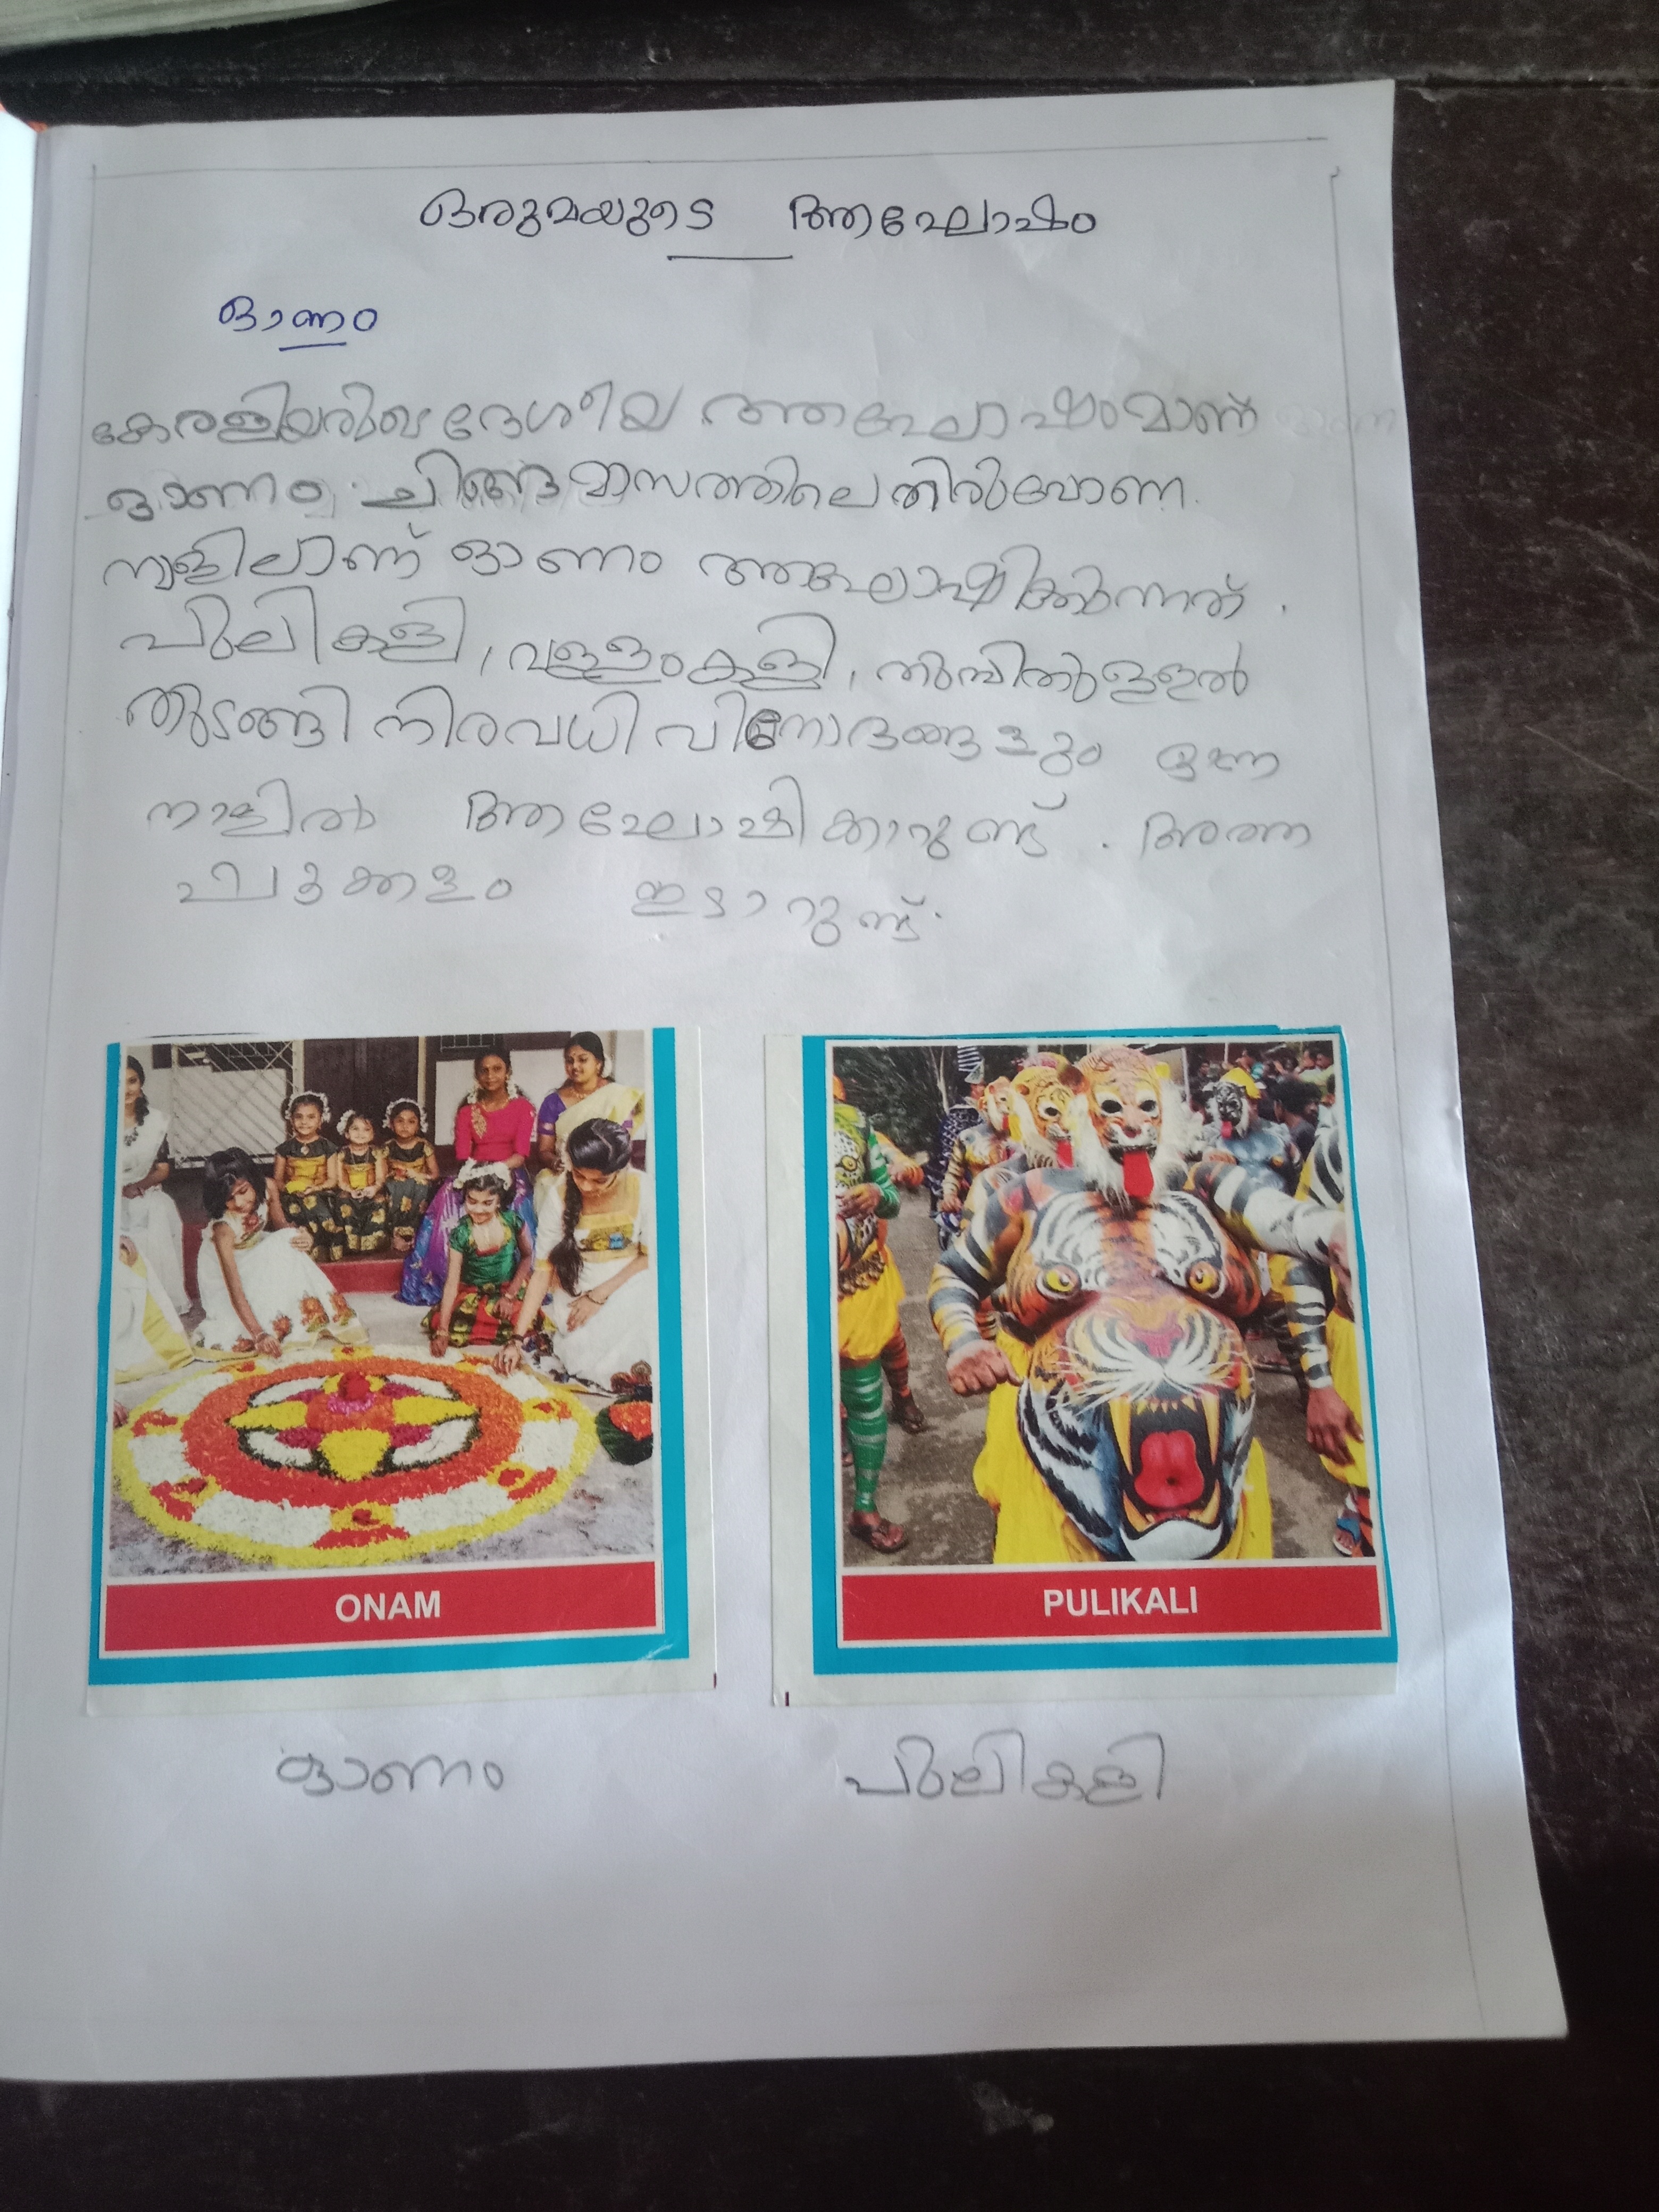 ഒരുമയുടെ ആഘോഷം
ഓണം
കേരളിയരുടെ ദേശീയ ആഘോഷംമാണ്
ഓണം. ചിങ്ങമാസത്തിലെ തിരുവോണ
നാളിലാണ് ഓണം ആഘോഷിക്കുന്നത്.
പുലികളി, വള്ളംകളി, തുമ്പിതുള്ളൽ
തുടങ്ങി നിരവധി വിനോദങ്ങളും
നാളിൽ ആഘോഷിക്കാറുണ്ട്. അത്ത
പൂക്കളം ഇടാറുണ്ട്.
ONAM
PULIKALI
ഓണം
പുലികളി